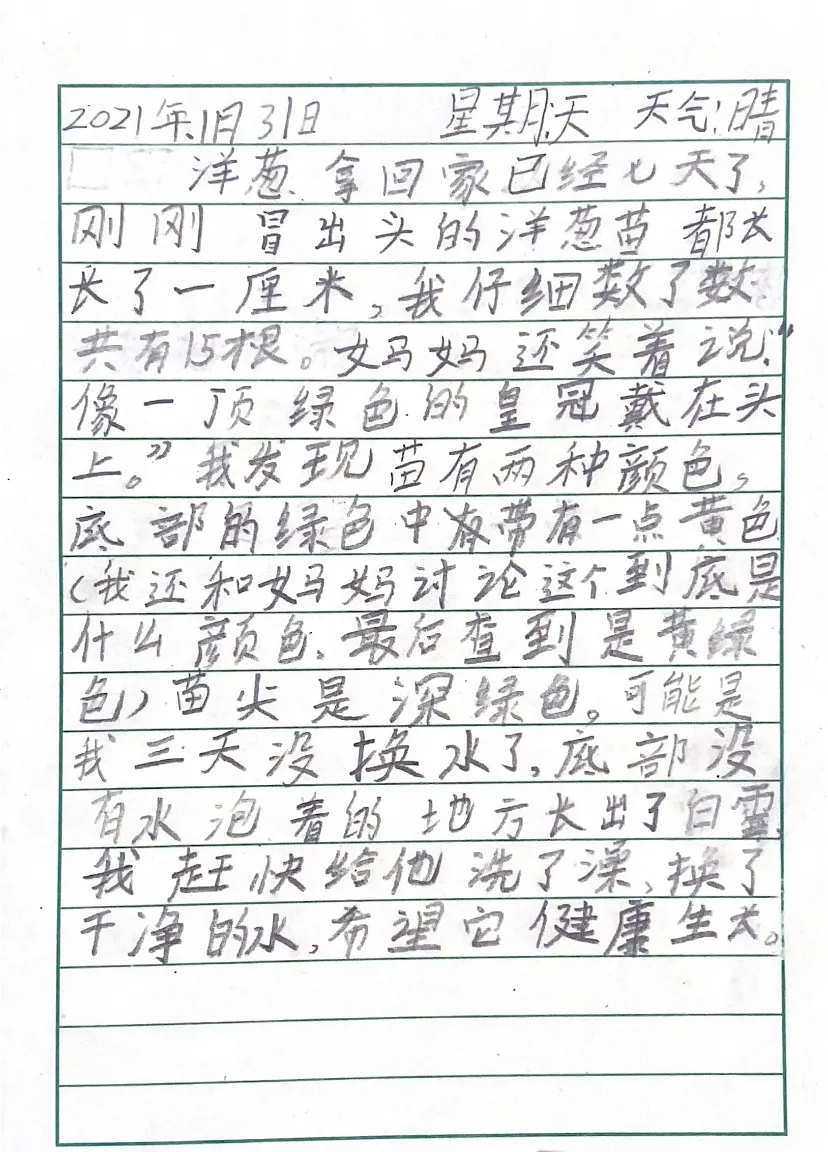 2021年1月31日 星期天 天气:晴
洋葱拿回家已经七天了,
刚刚冒出头的洋葱苗都长
长了一厘米,我仔细数了数
共有15根。妈妈还笑着说:“
像一顶绿色的皇冠戴在头
上。”我发现苗有两种颜色。
底部的绿色中有带有一点黄色
(我还和妈妈讨论这个到底是
什么颜色,最后查到是黄绿
色)苗尖是深绿色。可能是
我三天没换水了,底部没
有水泡着的地方长出了白霉
我赶快给他洗了澡,换了
干净的水,希望它健康生长。